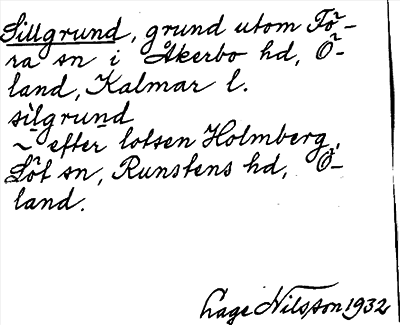 Sillgrund, grund utom Fö-
ra sn i Åkerbo hd, Ö-
land, Kalmar l.
silgrund
~ efter lotsen Holmberg,
Löt sn, Runstens hd, Ö-
land.
Lage Nilsson 1932